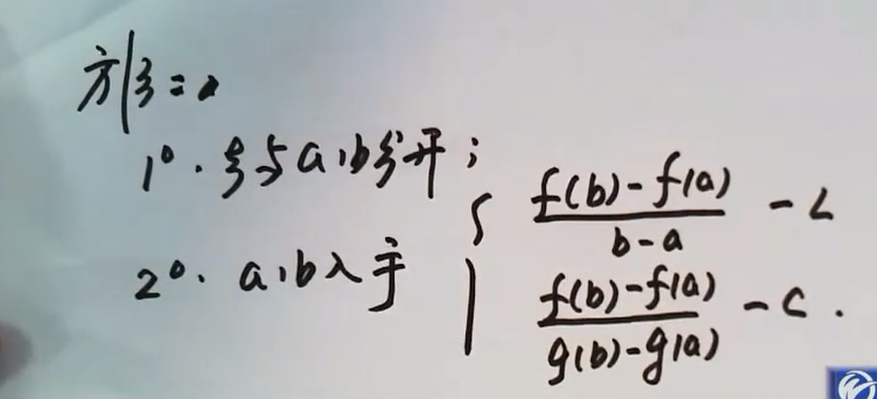 1°. ξ与a,b分开;
2°. a,b入手 { (f(b)-f(a))/(b-a) - L
(f(b)-f(a))/(g(b)-g(a)) - C.